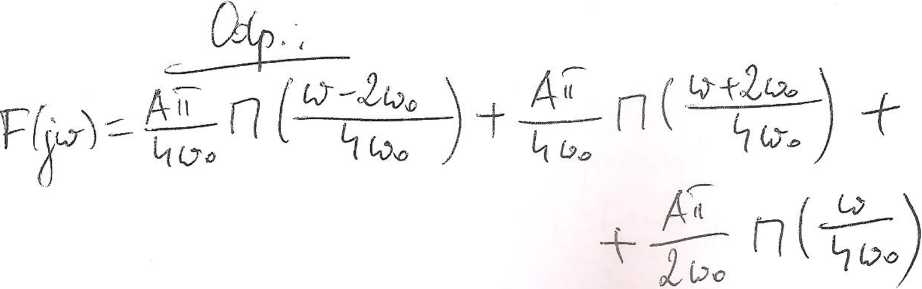 Odp.:
F(jω) = Aπ/4ω₀ Π((ω-2ω₀)/4ω₀) + Aπ/4ω₀ Π((ω+2ω₀)/4ω₀) +
+ Aπ/2ω₀ Π(ω/4ω₀)